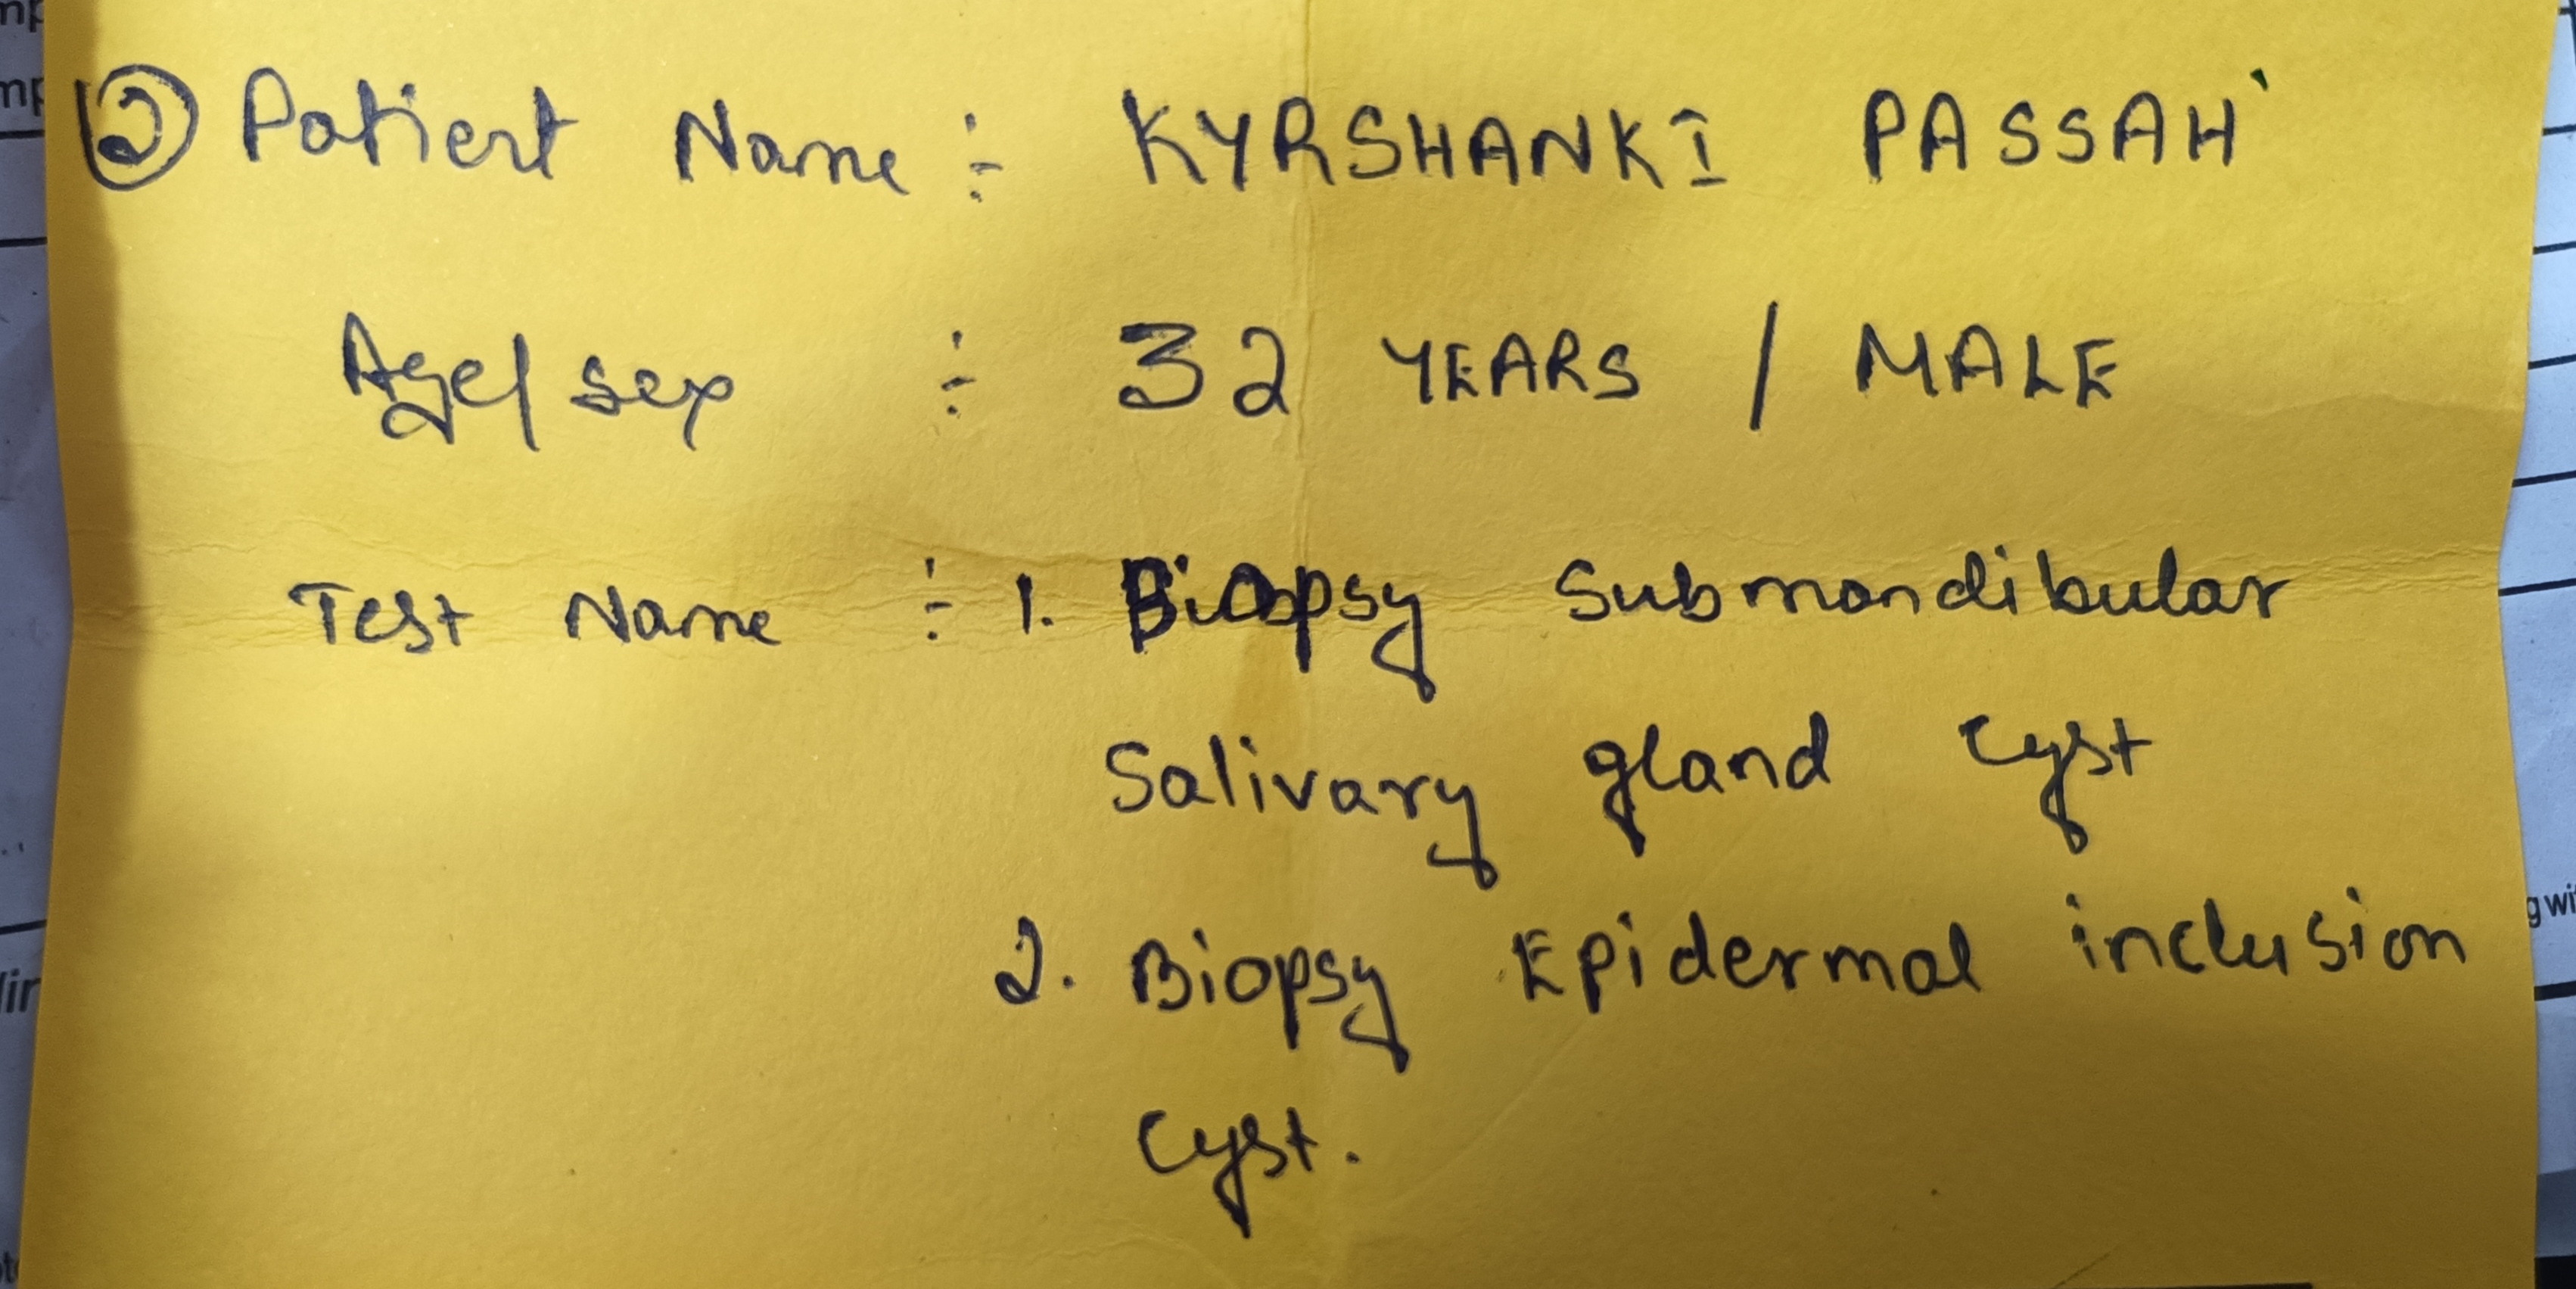 ② Patient Name :- KYRSHANKI PASSAH
Age/sex :- 32 YEARS / MALE
Test Name :- 1. Biopsy Submandibular
Salivary gland cyst
2. Biopsy Epidermal inclusion
cyst.